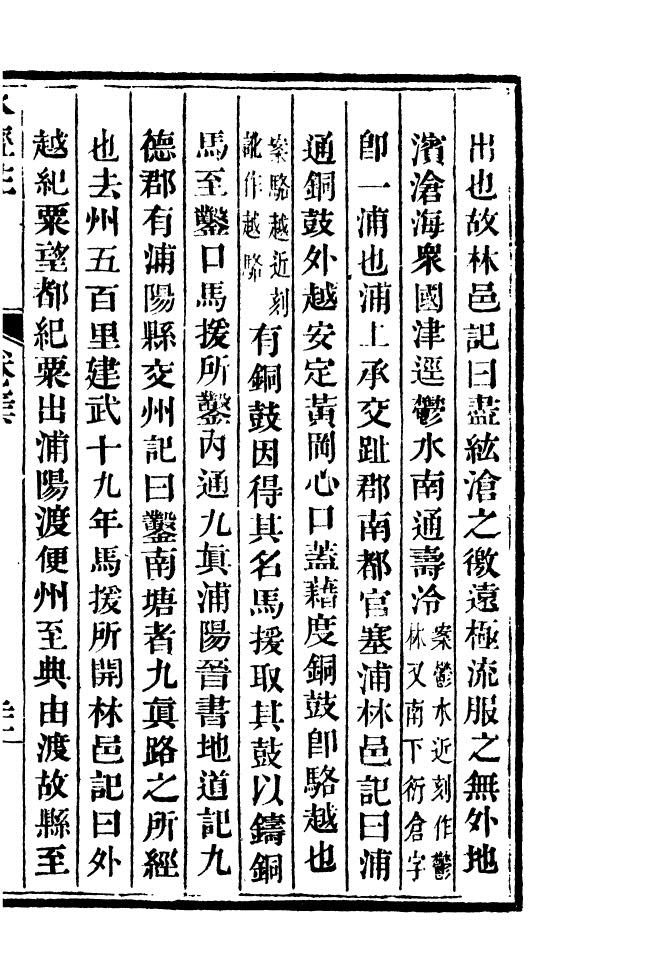 出也故林邑記曰盡紘滄之徼遠極流服之無外地
濱滄海衆國津逕鬱水南通壽泠案鬱水近刻作鬱林又南下衍倉字
卽一浦也浦上承交趾郡南都官塞浦林邑記曰浦
通銅鼓外越安定黃岡心口蓋藉度銅鼓卽駱越也
案駱越近刻訛作越駱有銅鼓因得其名馬援取其鼓以鑄銅
馬至鑿口馬援所鑿內通九眞浦陽晉書地道記九
德郡有浦陽縣交州記曰鑿南塘者九眞路之所經
也去州五百里建武十九年馬援所開林邑記曰外
越紀粟望都紀粟出浦陽渡便州至典由渡故縣至
水經注 卷三六